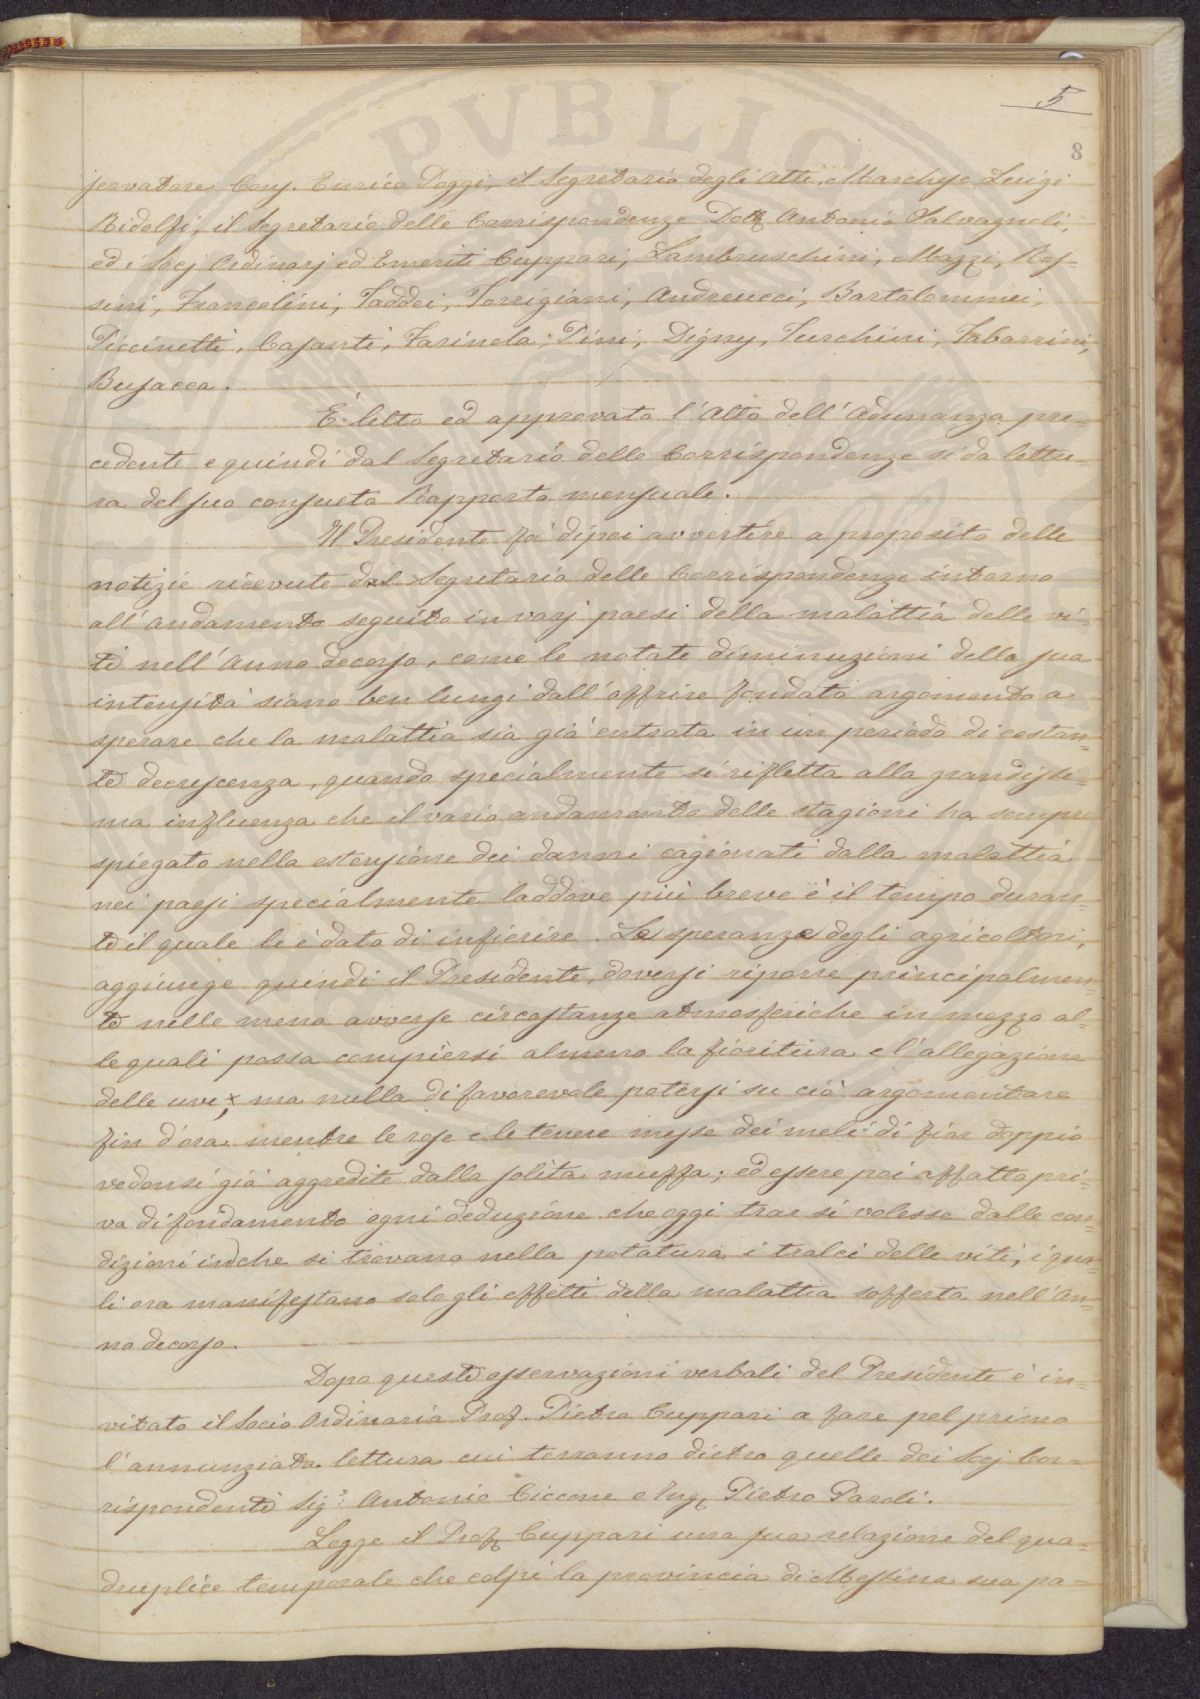 5
8
servatore Cony. Enrico Poggi, il Segretario degli Atti Marchese Luigi
Ridolfi, il Segretario delle Corrispondenze Dott. Antonio Salvagnoli,
ed i Socj Ordinarj ed Emeriti Cuppari, Lambruschini, Mazzi, Ros=
sini, Francolini, Taddei, Torrigiani, Andreucci, Bartolommei,
Piccinetti, Casanti, Farinola, Pini, Digny, Turchini, Tabarrini,
Busacca.
È letto ed approvato l'Atto dell'Adunanza pre=
cedente e quindi dal Segretario delle Corrispondenze si da lettu=
ra del suo consueto Rapporto mensuale.
Il Presidente fa dipoi avvertire a proposito delle
notizie ricevute dal Segretario delle Corrispondenze intorno
all'andamento seguito in varj paesi della malattia delle vi=
ti nell'Anno decorso, come le notate diminuzioni della sua
intensità siano ben lungi dall'offrire fondato argomento a
sperare che la malattia sia già entrata in un periodo di costan=
te decrescenza, quando specialmente si rifletta alla grandissi=
ma influenza che il vario andamento delle stagioni ha sempre
spiegato nella estensione dei danni cagionati dalla malattia
nei paesi specialmente laddove più breve è il tempo duran=
te il quale le è dato di infierire. Le speranze degli agricoltori,
aggiunge quindi il Presidente, doversi riporre principalmen=
te nelle meno avverse circostanze atmosferiche in mezzo al=
le quali possa compiersi almeno la fioritura e l'allegazione
delle uve; ma nulla di favorevole potersi su ciò argomentare
fin d'ora mentre le rose e le tenere messe dei meli di fior doppio
vedonsi già aggredite dalla solita muffa; ed essere poi affatto pri=
va di fondamento ogni deduzione che oggi trar si volesse dalle con=
dizioni in che si trovano nella potatura i tralci delle viti, i qua=
li ora manifestano solo gli effetti della malattia sofferta nell'An=
no decorso.
Dopo queste osservazioni verbali del Presidente è in=
vitato il Socio Ordinario Prof. Pietro Cuppari a fare pel primo
l'annunziata lettura cui terranno dietro quelle dei Socj Cor=
rispondenti Sig.r Antonio Ciccone e Ing. Pietro Paroli.
Legge il Prof. Cuppari una sua relazione del qua=
druplice temporale che colpì la provincia di Messina sua pa=